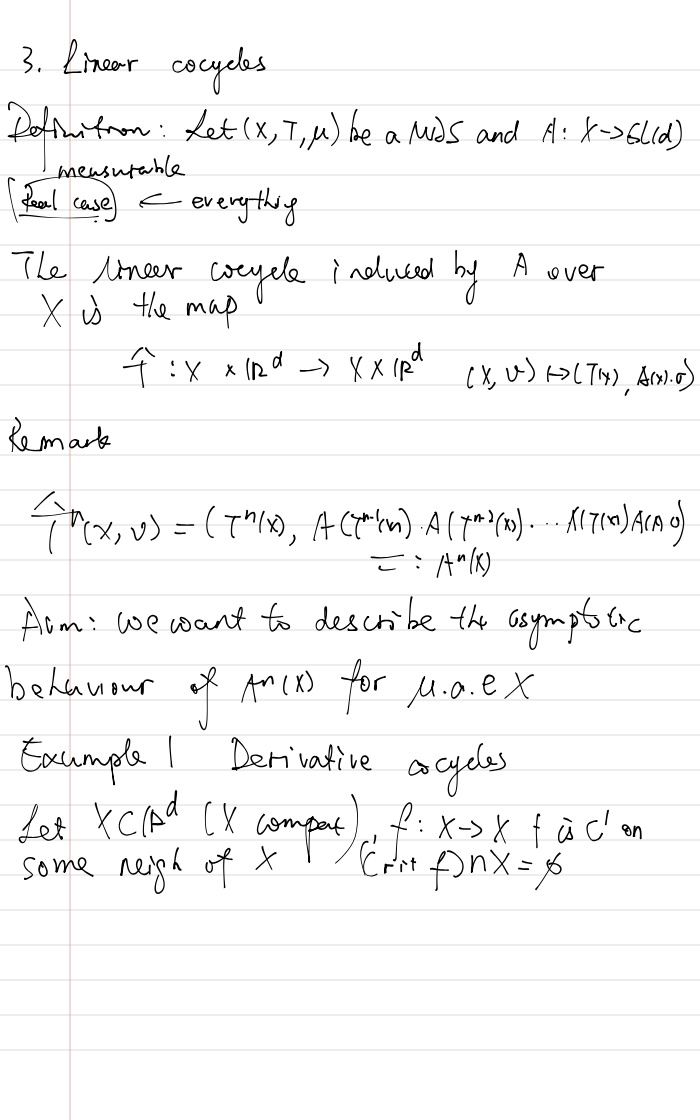 3. Linear cocycles
Definition: Let (X, T, μ) be a MDS and A: X → GL(d)
measurable
[Real case] ← everything
The linear cocycle induced by A over
X is the map
T̂ : X × ℝᵈ → X × ℝᵈ (x, v) ↦ (T(x), A(x).v)
Remark
T̂ⁿ(x, v) = (Tⁿ(x), A(Tⁿ⁻¹(x)).A(Tⁿ⁻²(x))... A(T(x))A(x) v)
=: Aⁿ(x)
Aim: we want to describe the asymptotic
behaviour of Aⁿ(x) for μ.a.e X
Example 1 Derivative cocycles
Let X ⊂ ℝᵈ (X compact), f: X → X f is C¹ on
some neigh of X (Crit f) ∩ X = ∅